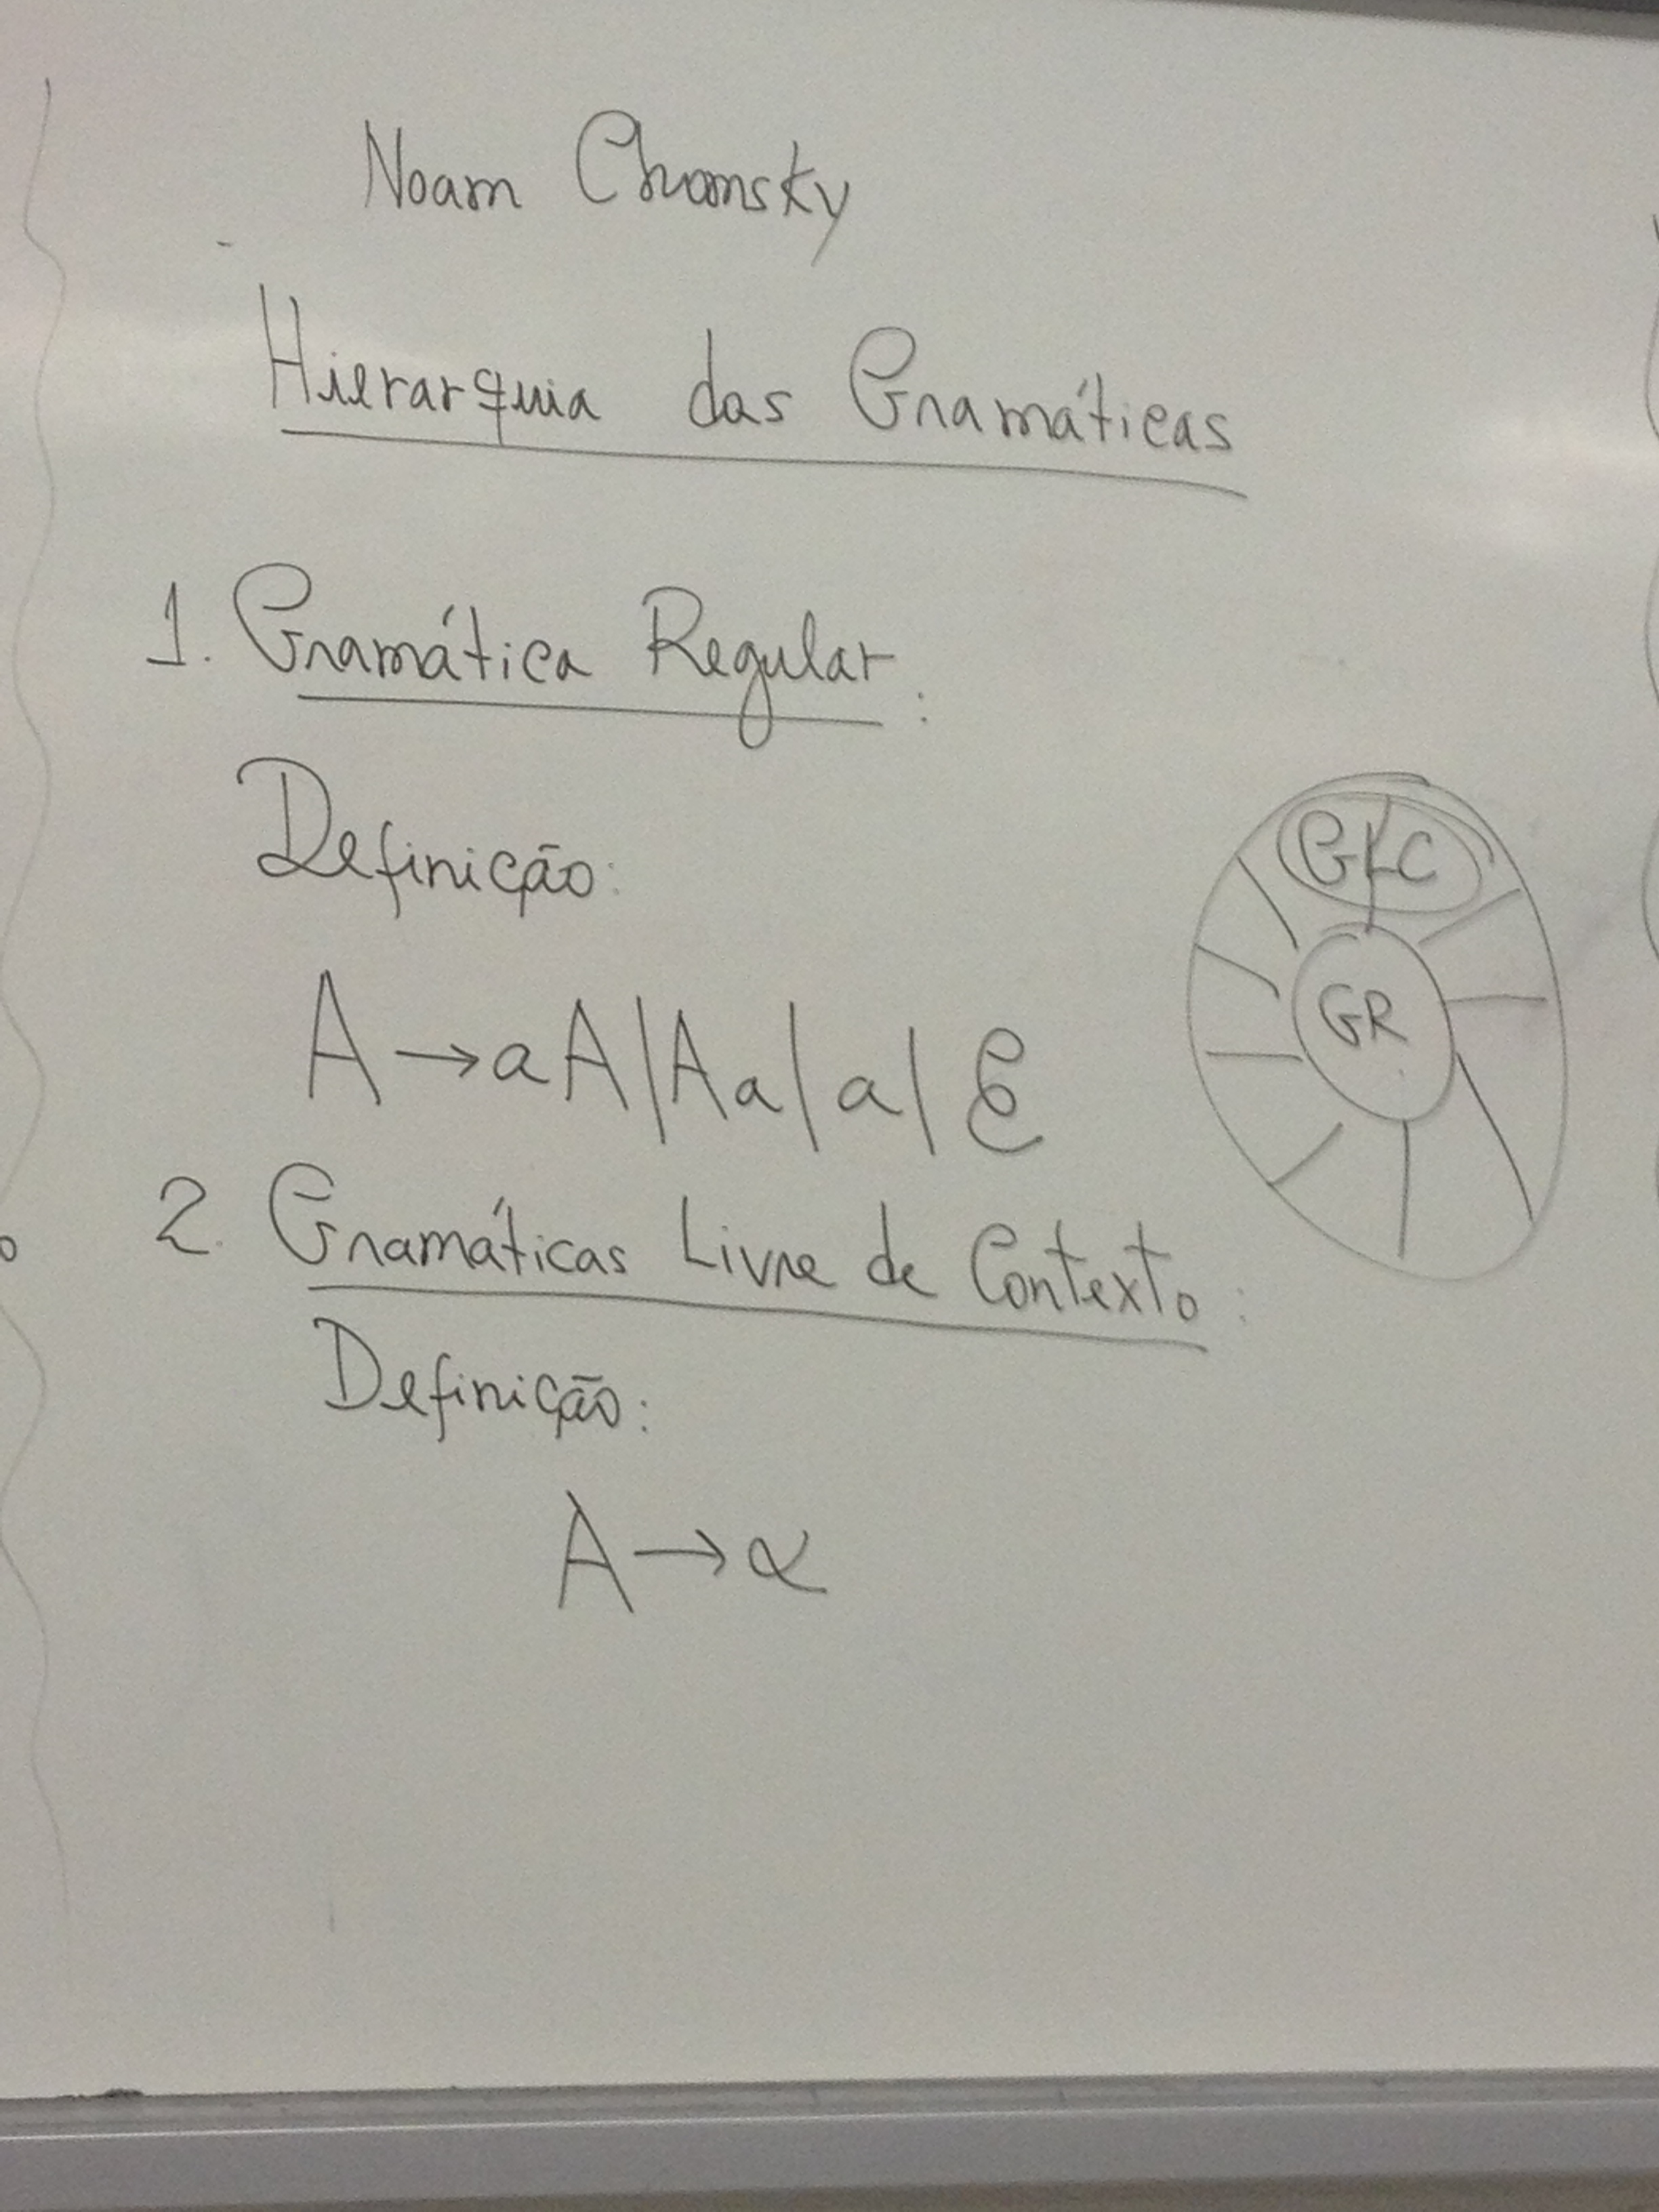 Noam Chomsky
Hierarquia das Gramáticas
1. Gramática Regular:
Definição:
GLC
A → aA | Aa | a | ε
GR
2. Gramáticas Livre de Contexto:
Definição:
A → α